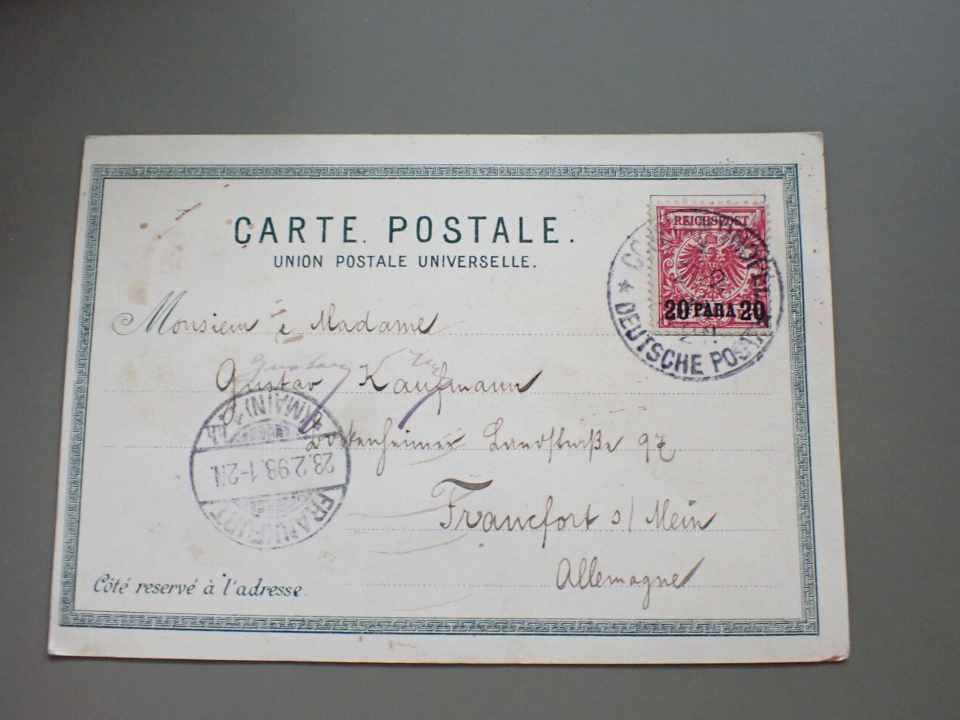 CARTE. POSTALE.
UNION POSTALE UNIVERSELLE.
REICHSPOST
20 PARA 20
* DEUTSCHE POST
Monsieur & Madame
Gustav Kaufmann
Landstraße 97
Francfort s/ Mein
Allemagne
(MAIN)
23.2.98.1-2N.
FRANKFURT
Côté reservé à l'adresse.